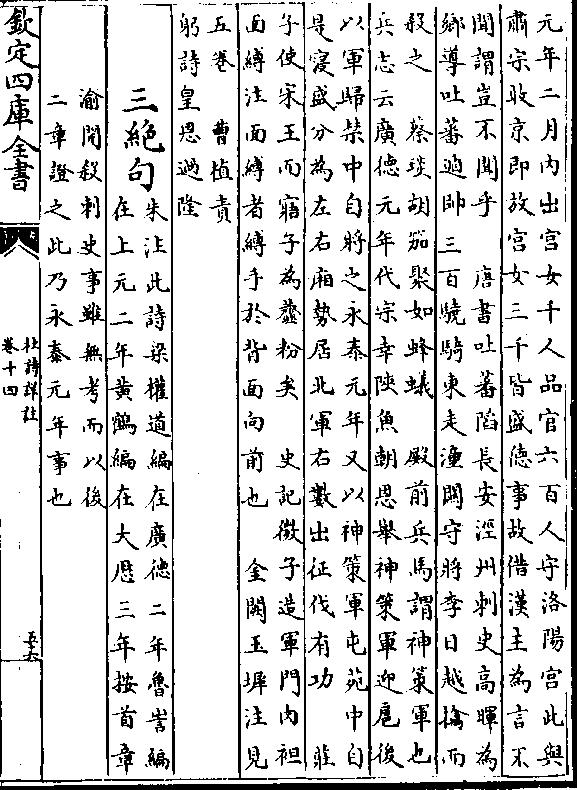 元年二月內出宮女千人品官六百人守洛陽宮此與
肅宗收京即放宮女三千皆盛德事故借漢主為言不
聞謂豈不聞乎　唐書吐蕃陷長安涇州刺史高暉為
鄉導吐蕃遁帥三百驍騎東走潼關守將李日越擒而
殺之　蔡琰胡笳聚如蜂蟻　殿前兵馬謂神策軍也
兵志云廣德元年代宗幸陜魚朝恩舉神策軍迎扈後
以軍歸禁中自將之永泰元年又以神策軍屯苑中自
是寖盛分為左右廂勢居北軍右數出征伐有功　莊
子使宋王而寤子為虀粉矣　史記微子造軍門肉袒
面縛注面縛者縛手於背面向前也　金闕玉墀注見
五卷　曹植責
躬詩皇恩過隆
三絕句
朱注此詩梁權道編在廣德二年魯訔編
在上元二年黃鶴編在大厯三年按首章
渝開殺刺史事雖無考而以後
二章證之此乃永泰元年事也
欽定四庫全書
杜詩詳註
卷十四
五六